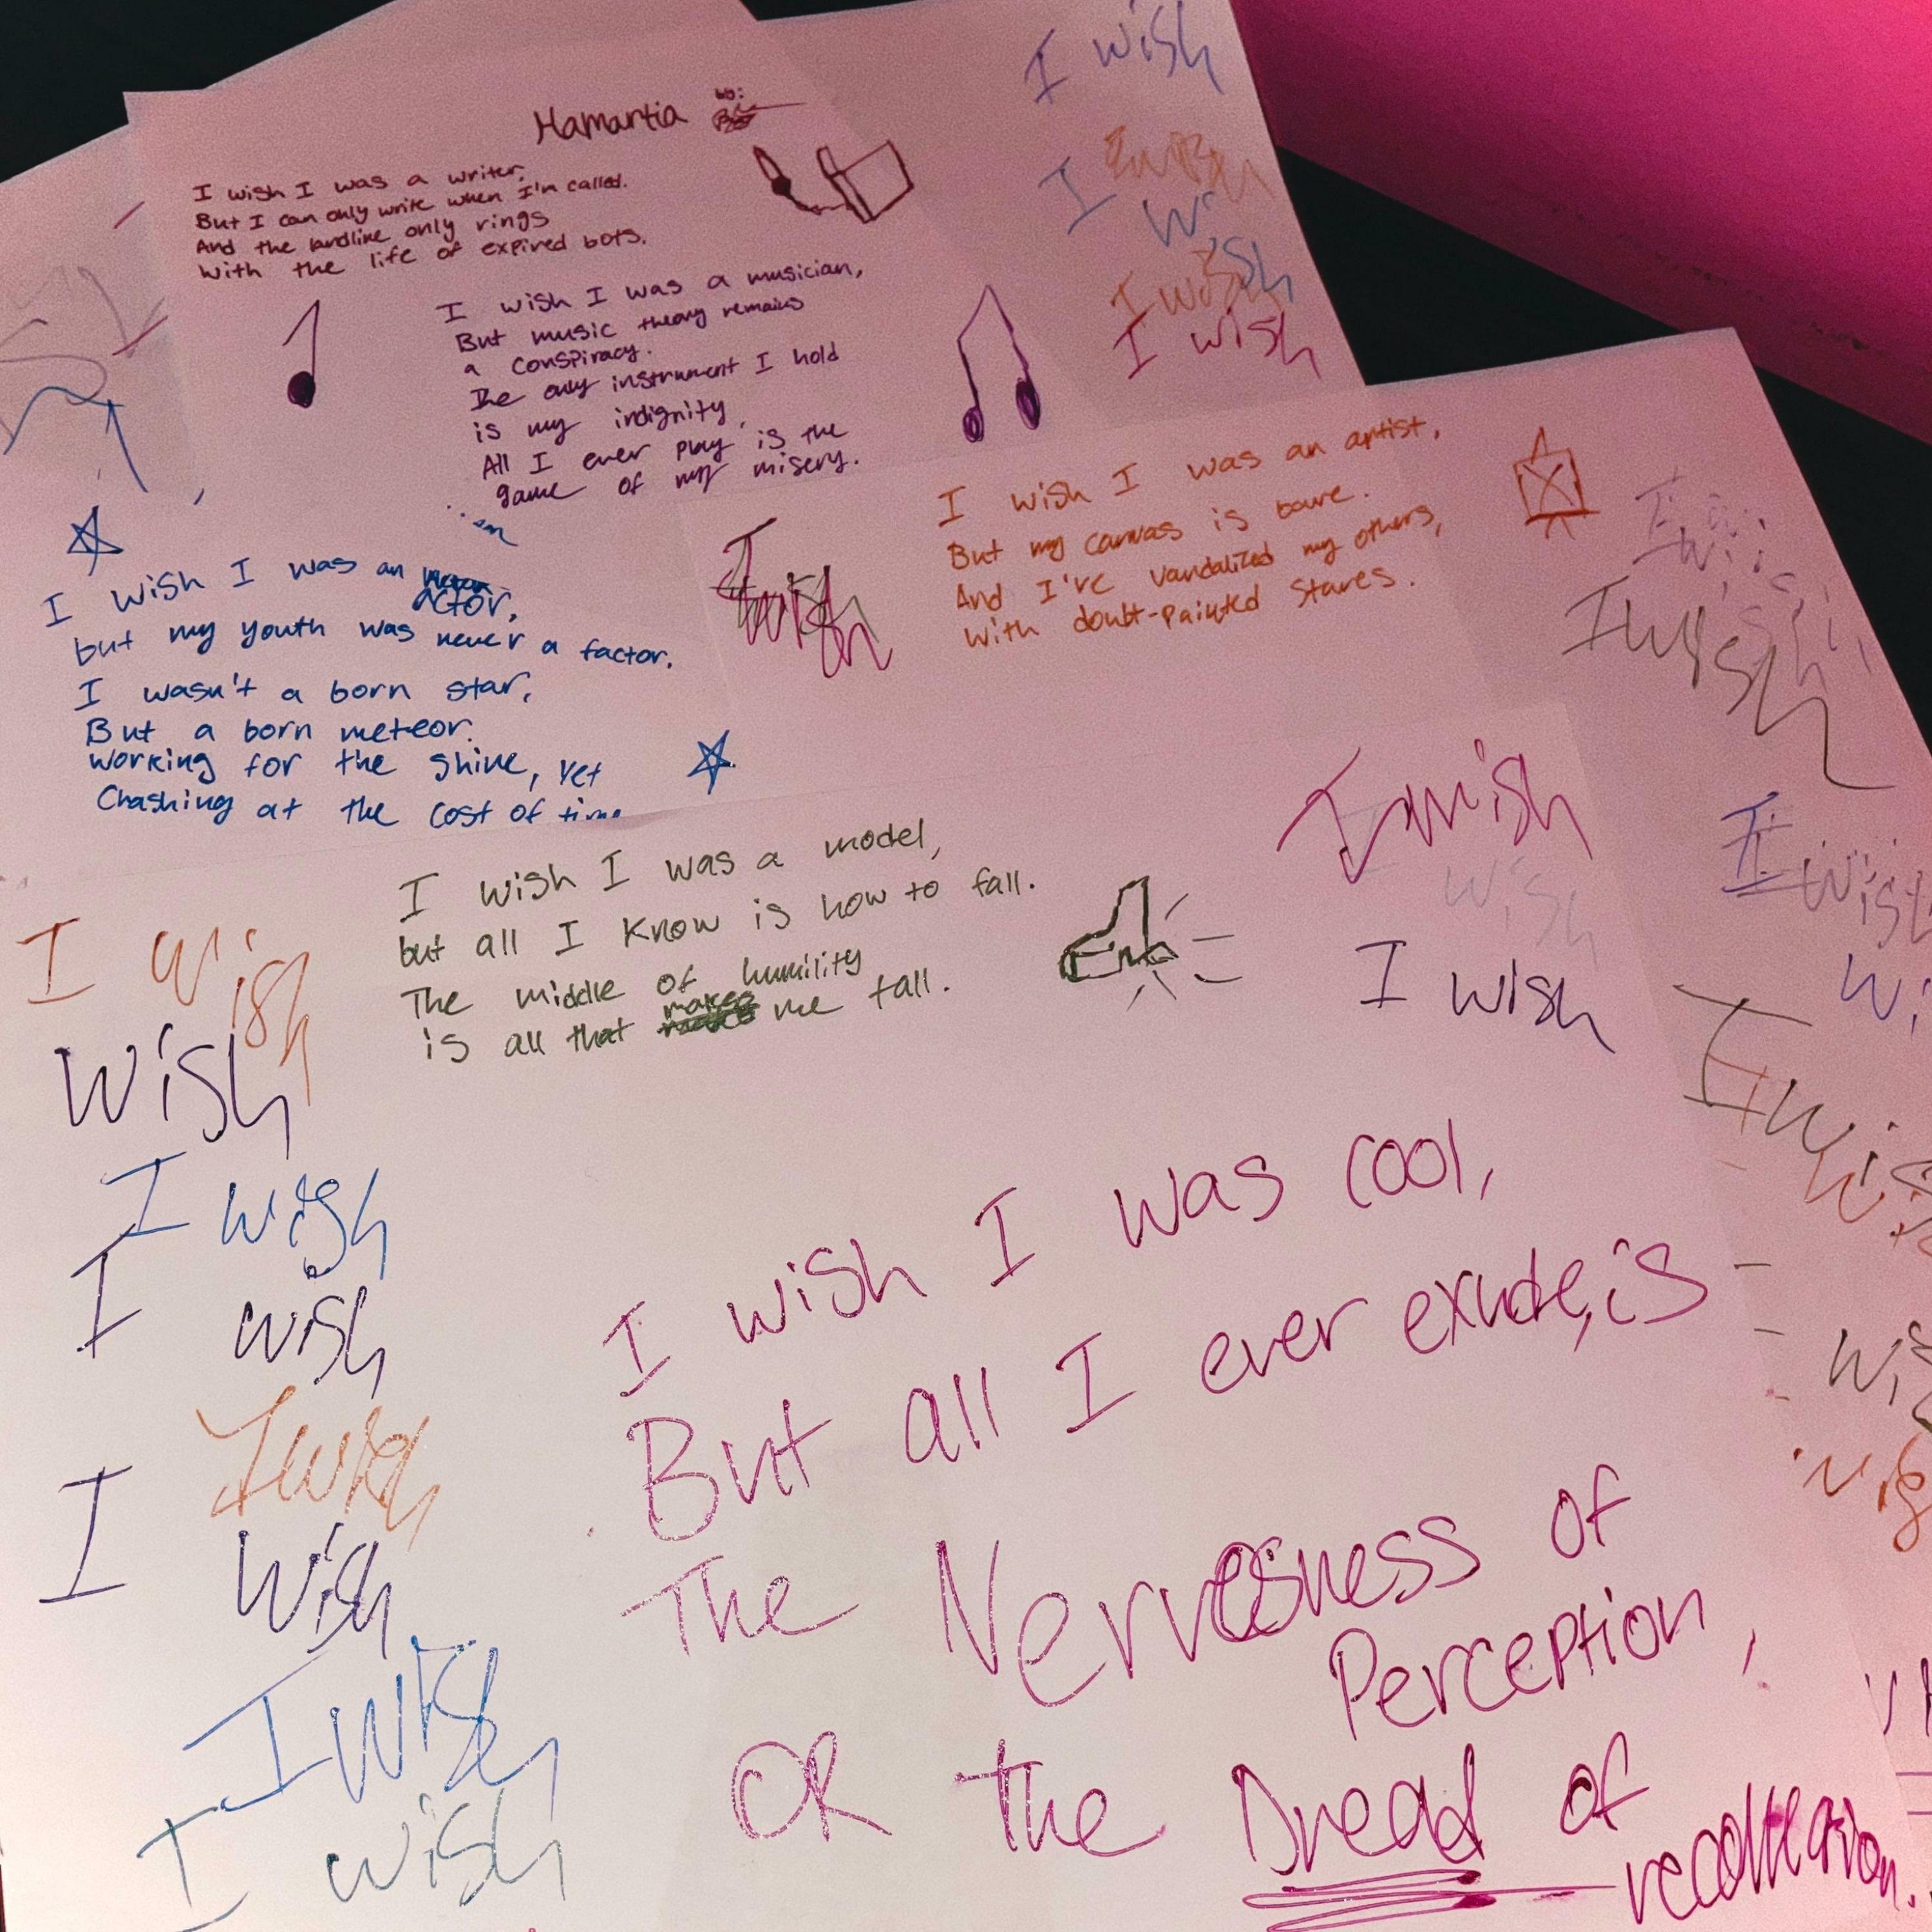 Hamartia by:
I wish I was a writer,
But I can only write when I'm called.
And the landline only rings
With the life of expired bots.
I wish I was a musician,
But music theory remains
a conspiracy.
The only instrument I hold
is my indignity,
All I ever play is the
game of my misery.
I wish I was an artist,
But my canvas is bare.
And I've vandalized my others,
With doubt-painted stares.
I wish I was an actor,
but my youth was never a factor.
I wasn't a born star,
But a born meteor.
Working for the shine, yet
Chashing at the cost of time
I wish I was a model,
but all I know is how to fall.
The middle of humility
is all that makes me tall.
I wish I was cool,
But all I ever exude, is
The Nervousness of
Perception,
OR the Dread of
recollection.
I wish
I
Wish
I wish
I wish
I wish
I wish
I wish
I wish
wish
I wish
I wish
Wish
I wish
I wish
I wish
I wish
I wish
I wish